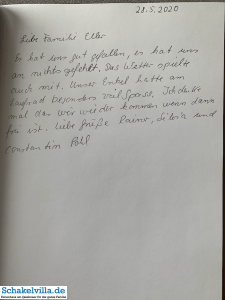 28.5.2020
Liebe Familie Eller
Es hat uns gut gefallen, es hat uns
an nichts gefehlt. Das Wetter spielte
auch mit. Unser Enkel hatte am
besonders viel Spass. Ich denke
mal das wir wieder kommen wenn dann
frei ist. Liebe Grüße Rainer, Silvia und
Constantin Pohl
Schakelvilla.de